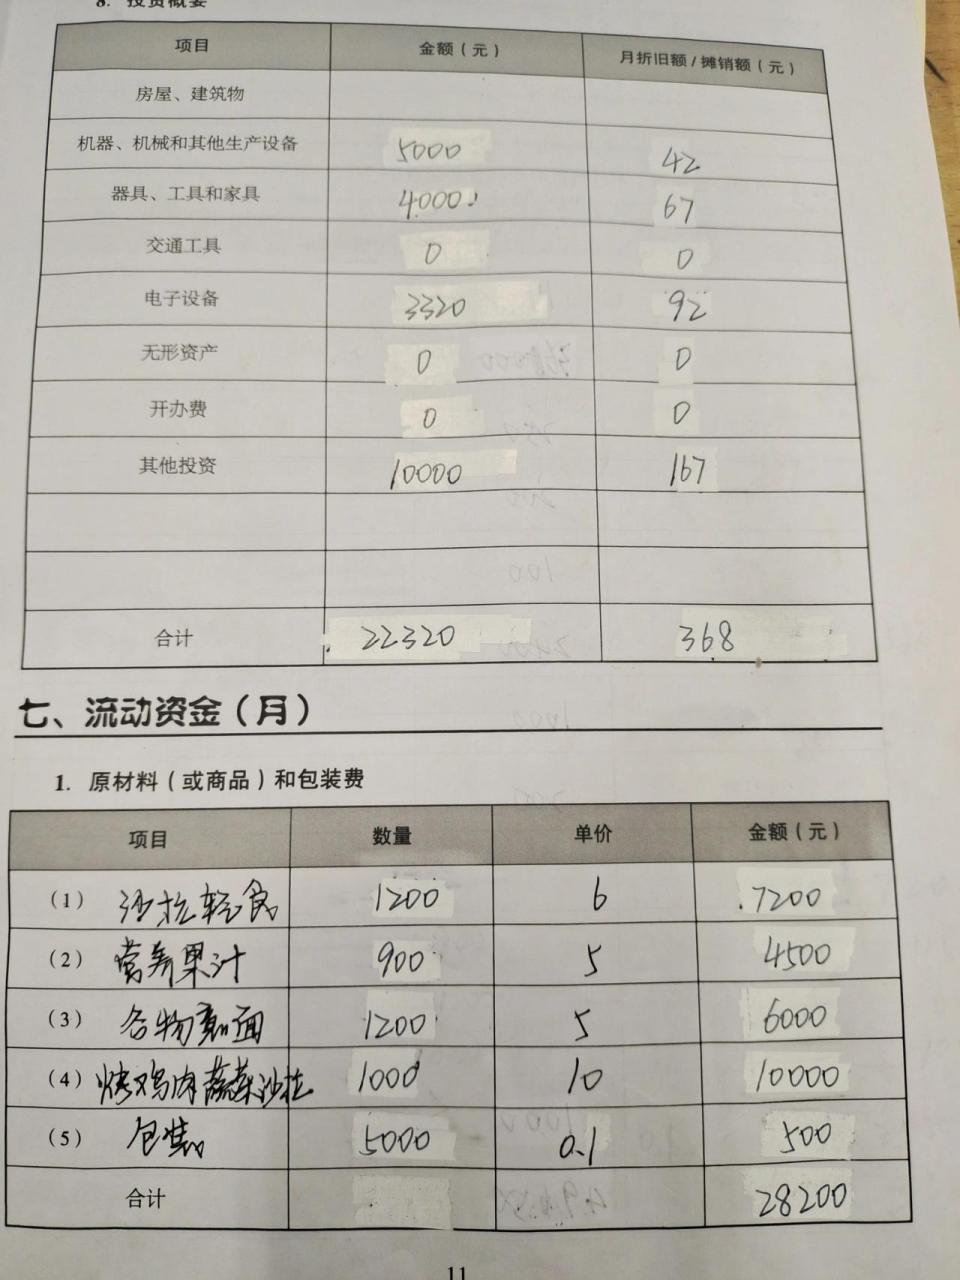 8. 投资概要
项目 金额（元） 月折旧额/摊销额（元）
房屋、建筑物
机器、机械和其他生产设备 5000 42
器具、工具和家具 4000 67
交通工具 0 0
电子设备 3320 92
无形资产 0 0
开办费 0 0
其他投资 10000 167
合计 22320 368
七、流动资金（月）
1. 原材料（或商品）和包装费
项目 数量 单价 金额（元）
（1） 沙拉轻食 1200 6 7200
（2） 营养果汁 900 5 4500
（3） 谷物意面 1200 5 6000
（4） 烤鸡肉蔬菜沙拉 1000 10 10000
（5） 包装 5000 0.1 500
合计 28200
11